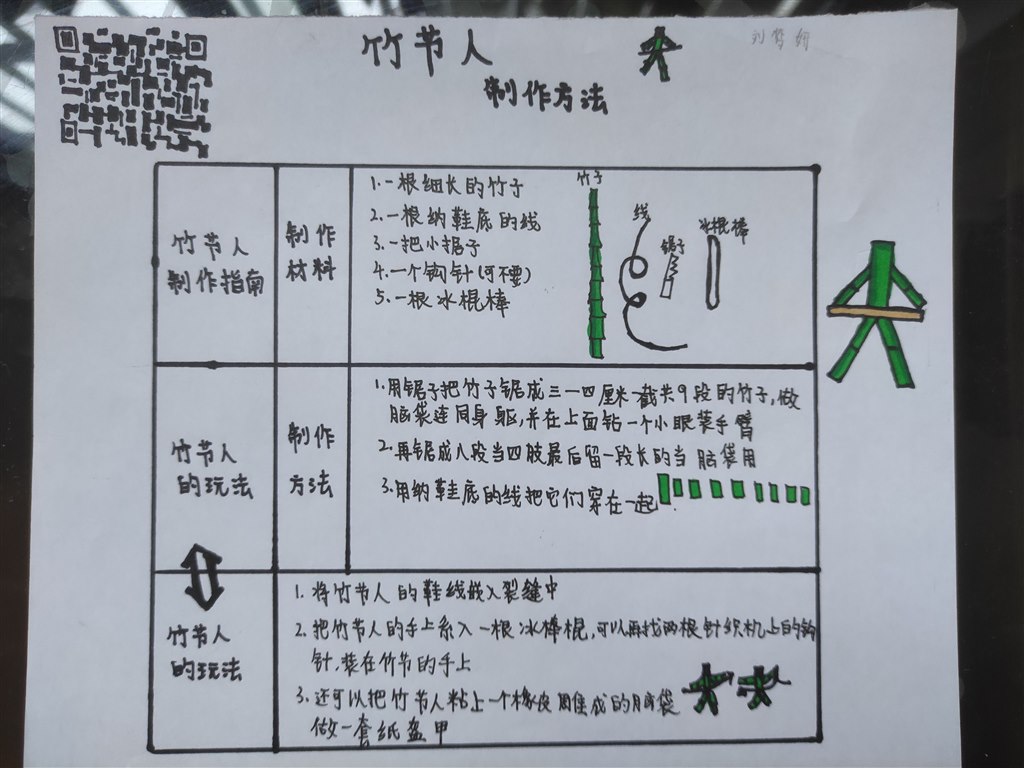 竹节人
制作方法
竹节人
制作指南
制作
材料
1.一根细长的竹子
2.一根纳鞋底的线
3.一把小锯子
4.一个钩针(可不要)
5.一根冰棍棒
竹子
线
锯子
冰棍棒
竹节人
的玩法
制作
方法
1.用锯子把竹子锯成三一四厘米一截共9段的竹子,做
脑袋连同身躯,并在上面钻一个小眼装手臂
2.再锯成八段当四肢最后留一段长的当脑袋用
3.用纳鞋底的线把它们穿在一起
竹节人
的玩法
1.将竹节人的鞋线嵌入裂缝中
2.把竹节人的手上系入一根冰棒棍,可以再找两根针织机上的钩
针,装在竹节的手上
3.还可以把竹节人粘上一个橡皮雕成的脑袋
做一套纸盔甲